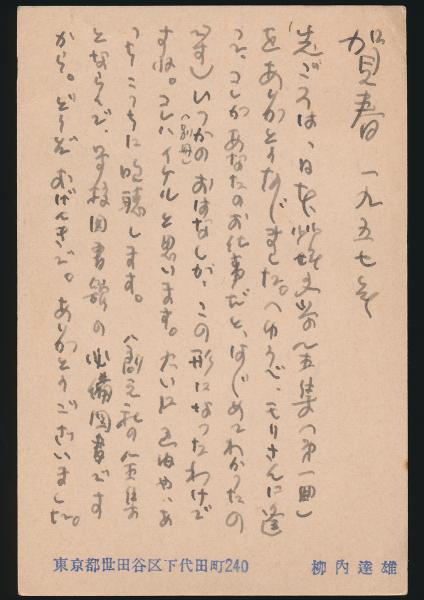 賀春 一九五七年
先ごろは、日本 文学の全集(第一回)
をありがとうなじました。へゆうべ、モリさんに逢
って、コレがあなたのお仕事だと、はじめてわかったの
です)いつかのおはなしが、この形になったわけで
(別冊)
すね。コレハイケルと思います。大いに 、あ
っちこっちに吹聴します。 元社の全集
とならんで、学校図書館の必備図書です
から。どうぞおげんきで。ありがとうございました。
東京都世田谷区下代田町240 柳内達雄